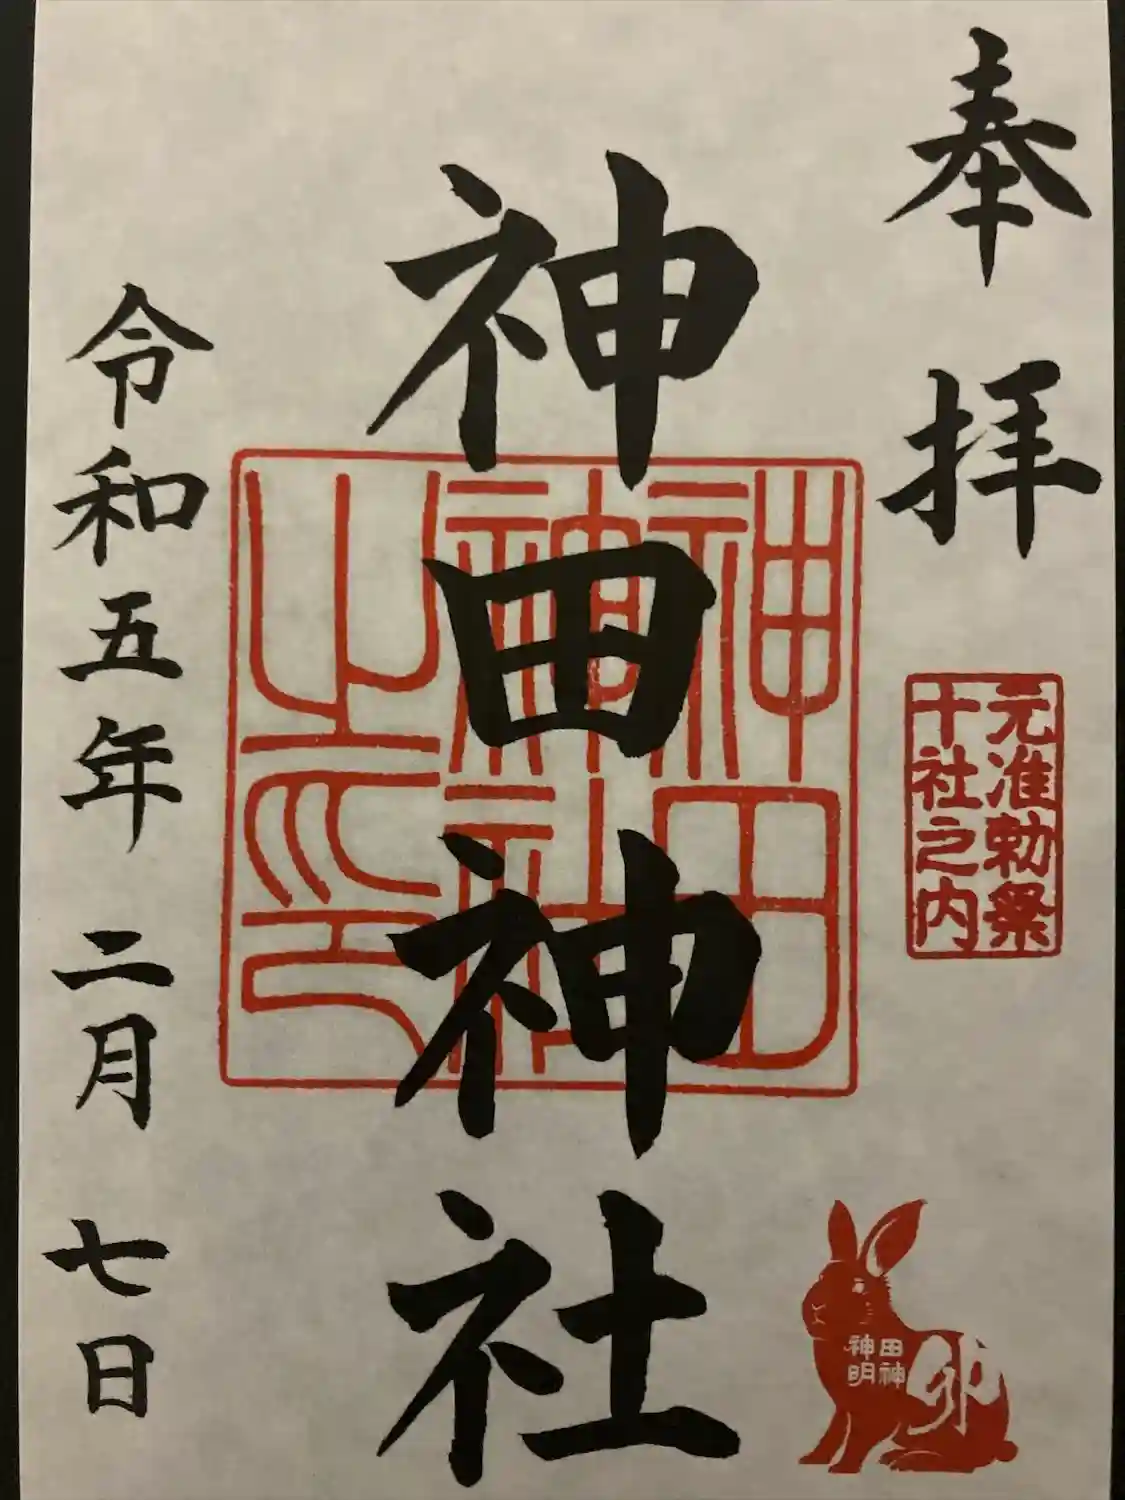 奉拝
元准勅祭
十社之内
神田神社
神田
神社
之印
卯
田神
神明
令和五年二月七日